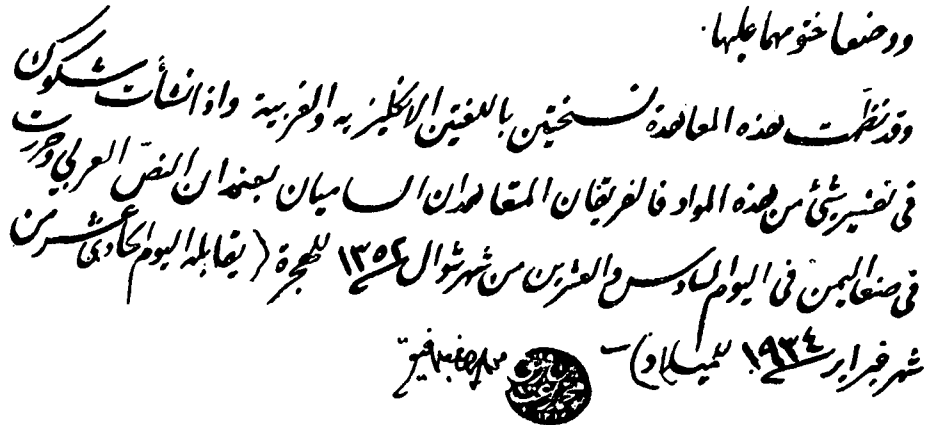 ووضعا ختومهما عليها.
وقد نظمت هذه المعاهدة نسختين باللغتين الانكليزيه والعربية واذا نشأت شكوك
فى تفسير شئ من هذه المواد فالفريقان المتعاهدان الساميان يعتمدان النصّ العربي وحررت
فى صنعا اليمن فى اليوم السادس والعشرين من شهر شوال ١٣٥٢ للهجرة (يقابله اليوم الحادى عشر من
شهر فبراير ١٩٣٤ للميلاد) –
محمد راغب بن رفيق